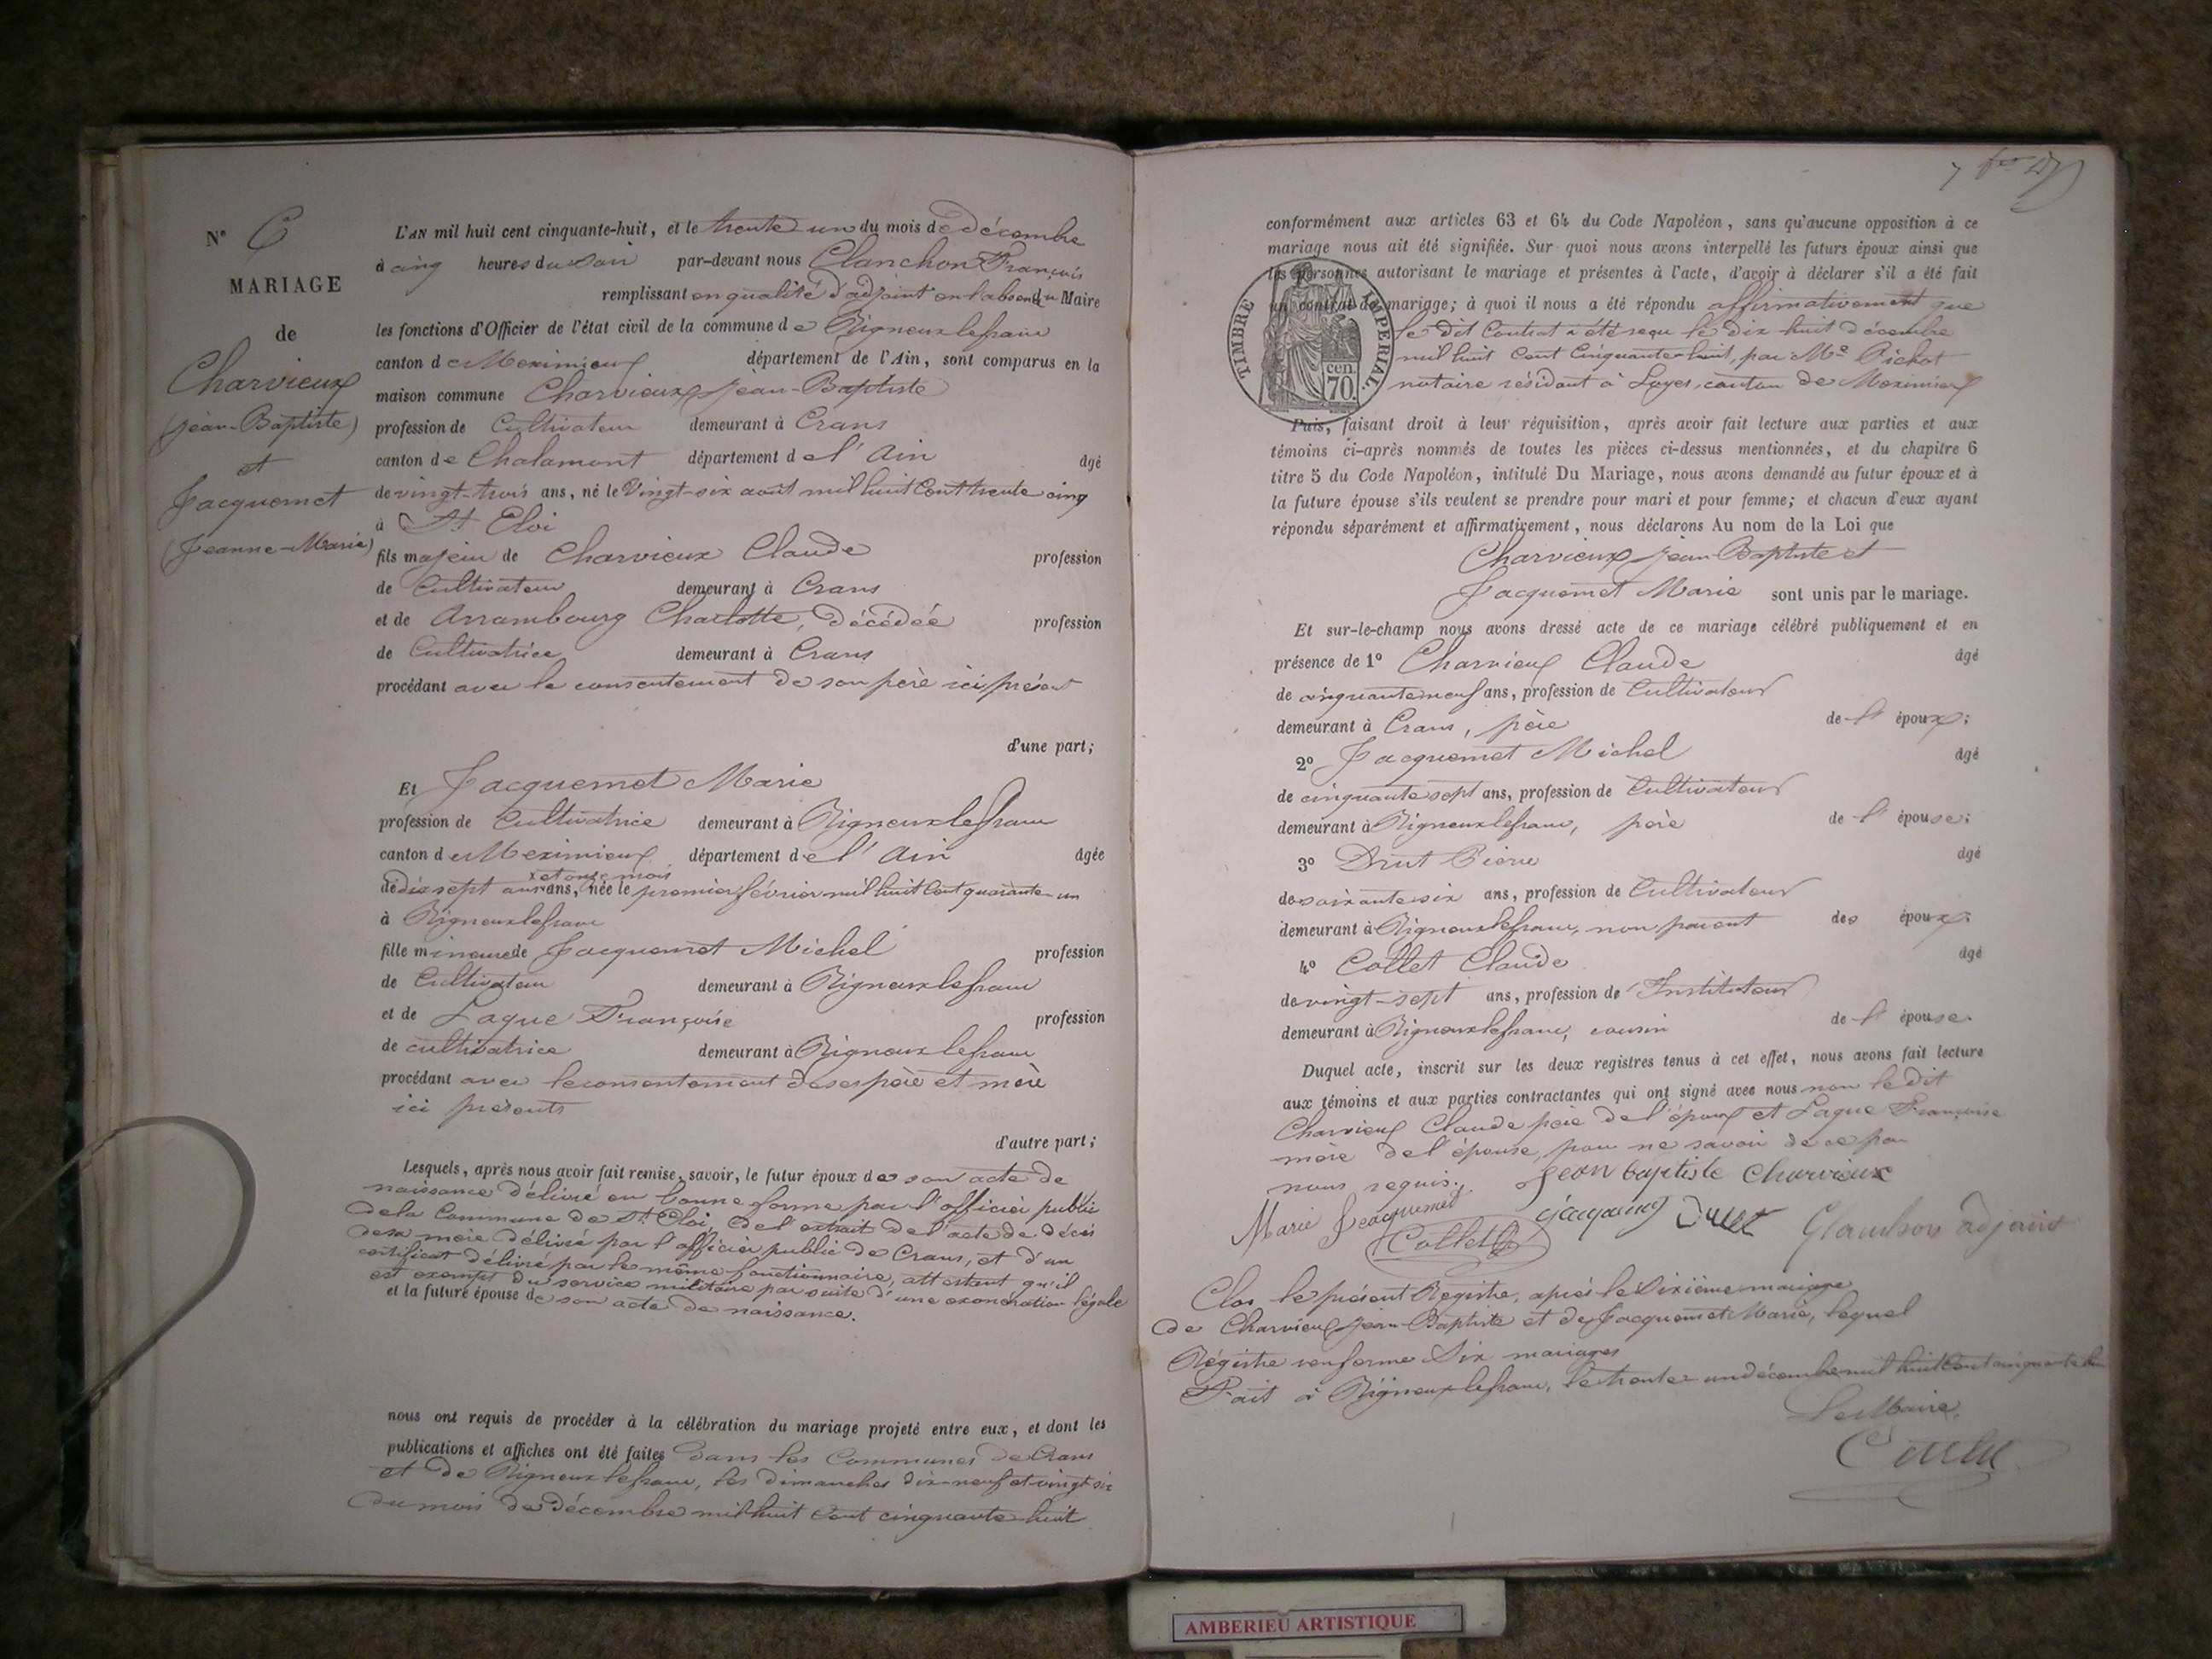 N° 6
MARIAGE
de
Charvieux
(Jean-Baptiste)
et
Jacquemet
(Jeanne-Marie)
L'AN mil huit cent cinquante-huit, et le trente un du mois de décembre
à cinq heures du soir par-devant nous Clanchon François
remplissant en qualité d'adjoint en l'absence du Maire
les fonctions d'Officier de l'état civil de la commune de Rigneux le franc
canton de Meximieux département de l'Ain, sont comparus en la
maison commune Charvieux Jean-Baptiste
profession de Cultivateur demeurant à Crans
canton de Chalamont département de l'Ain âgé
de vingt-trois ans, né le Vingt-six août mil huit Cent trente cinq
à St Eloi
fils majeur de Charvieux Claude profession
de Cultivateur demeurant à Crans
et de Arrambourg Charlotte, décédée profession
de Cultivatrice demeurant à Crans
procédant avec le consentement de son père ici présent
d'une part;
Et Jacquemet Marie
profession de Cultivatrice demeurant à Rigneux le franc
canton de Meximieux département de l'Ain âgée
et onze mois
de dix sept ans ans, née le premier février mil huit Cent quarante-un
à Rigneux le franc
fille mineure de Jacquemet Michel profession
de Cultivateur demeurant à Rigneux le franc
et de Laque Françoise profession
de cultivatrice demeurant à Rigneux le franc
procédant avec le consentement de ses père et mère
ici présents
d'autre part;
Lesquels, après nous avoir fait remise, savoir, le futur époux de son acte de
naissance délivré en bonne forme par l'officier public
de la Commune de St. Eloi, de l'extrait de l'acte de décès
de sa mère délivré par l'officier public de Crans, et d'un
certificat délivré par le même fonctionnaire, attestant qu'il
est exempt du service militaire par suite d'une exonération légale
et la future épouse de son acte de naissance.
nous ont requis de procéder à la célébration du mariage projeté entre eux, et dont les
publications et affiches ont été faites dans les Communes de Crans
et de Rigneux le franc, les dimanches dix-neuf et vingt-six
du mois de décembre mil huit Cent cinquante-huit
conformément aux articles 63 et 64 du Code Napoléon, sans qu'aucune opposition à ce
mariage nous ait été signifiée. Sur quoi nous avons interpellé les futurs époux ainsi que
les personnes autorisant le mariage et présentes à l'acte, d'avoir à déclarer s'il a été fait
un contrat de mariage; à quoi il nous a été répondu affirmativement que
le dit Contrat a été reçu le dix-huit décembre
mil huit Cent Cinquante-huit, par Me Pichot
notaire résidant à Loyes, canton de Meximieux
TIMBRE IMPERIAL
cen.
70.
Puis, faisant droit à leur réquisition, après avoir fait lecture aux parties et aux
témoins ci-après nommés de toutes les pièces ci-dessus mentionnées, et du chapitre 6
titre 5 du Code Napoléon, intitulé Du Mariage, nous avons demandé au futur époux et à
la future épouse s'ils veulent se prendre pour mari et pour femme; et chacun d'eux ayant
répondu séparément et affirmativement, nous déclarons Au nom de la Loi que
Charvieux Jean-Baptiste et
Jacquemet Marie sont unis par le mariage.
Et sur-le-champ nous avons dressé acte de ce mariage célébré publiquement et en
présence de 1° Charvieux Claude âgé
de cinquante neuf ans, profession de Cultivateur
demeurant à Crans, père de l'époux;
2° Jacquemet Michel âgé
de cinquante sept ans, profession de Cultivateur
demeurant à Rigneux le franc, père de l'épouse;
3° Drut Pierre âgé
de soixante six ans, profession de Cultivateur
demeurant à Rigneux le franc, non parent des époux;
4° Collet Claude âgé
de vingt-sept ans, profession de Instituteur
demeurant à Rigneux le franc, cousin de l'épouse.
Duquel acte, inscrit sur les deux registres tenus à cet effet, nous avons fait lecture
aux témoins et aux parties contractantes qui ont signé avec nous non le dit
Charvieux Claude père de l'époux et Laque Françoise
mère de l'épouse, pour ne savoir de ce par
nous requis.
Jean baptiste Charvieux
Marie Jacquemet
Collet
Clanchon adjoint
Clos le présent Registre, après le Sixième mariage
de Charvieux Jean-Baptiste et de Jacquemet Marie, lequel
Régistre renferme Six mariages
Fait à Rigneux le franc, le trente-un décembre mil huit Cent cinquante huit
Le Maire,
AMBERIEU ARTISTIQUE